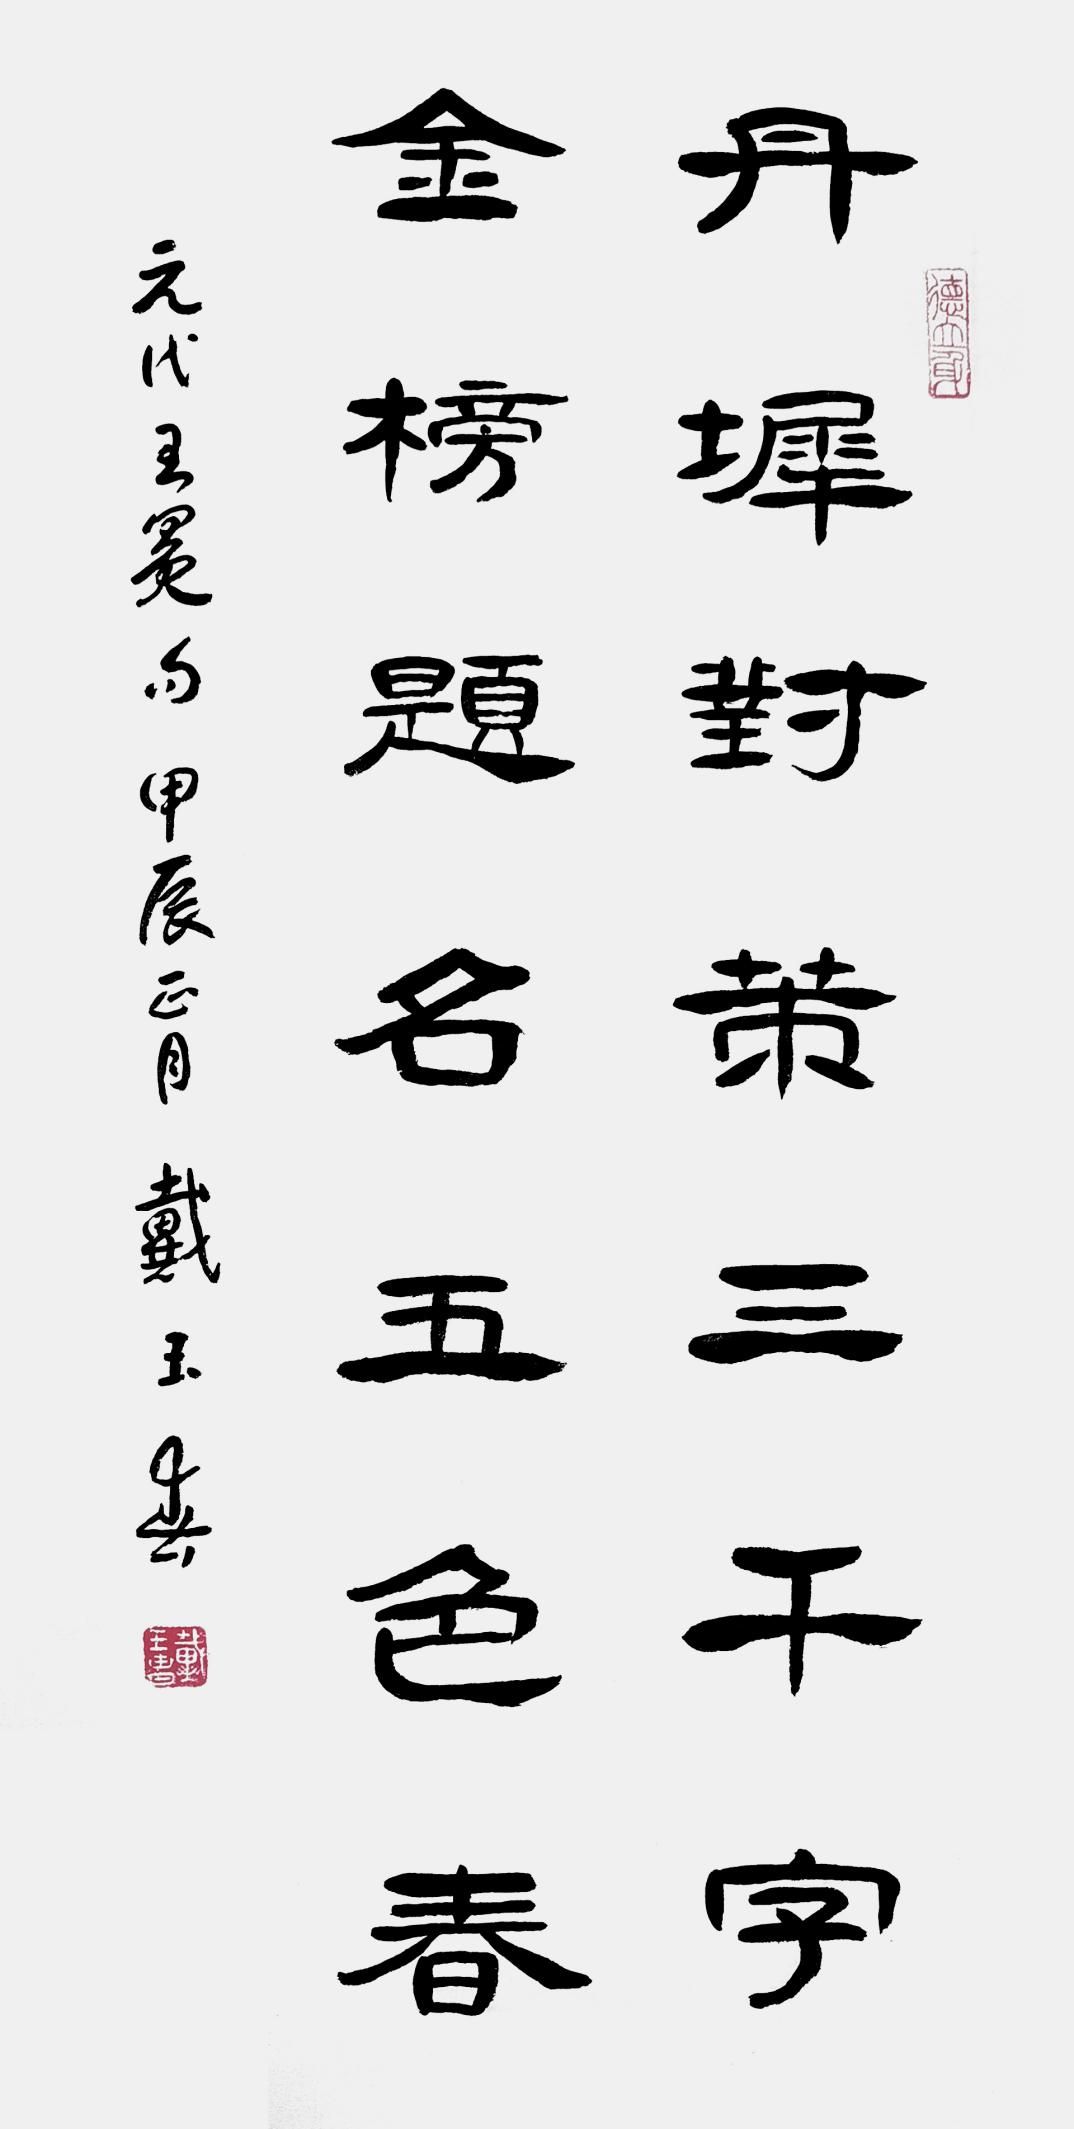 丹墀對策三千字
金榜題名五色春
元代王冕句 甲辰正月 戴玉